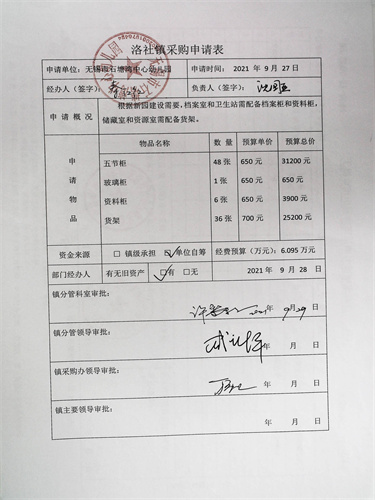 洛社镇采购申请表
申请单位：无锡 石塘湾中心幼儿园 申请时间： 2021 年 9 月 27 日
经办人（签字）： 负责人（签字）：
申 请 概 况 根据新园建设需要，档案室和卫生站需配备档案柜和资料柜，
储藏室和资源室需配备货架。
申请物品 物品名称 数 量 预算单价 预算总价
五节柜 48 张 650 元 31200 元
玻璃柜 1 张 650 元 650 元
资料柜 6 张 650 元 3900 元
货架 36 张 700 元 25200 元
资金来源 □ 镇级承担 ☑ 单位自筹 经费预算（万元）：6.095 万元
部门经办人 有无旧资产 ☑有 □无 2021 年 9 月 28 日
镇分管科室审批：
2021 年 9 月 29 日
镇分管领导审批：
年 月 日
镇采购办领导审批：
年 月 日
镇主要领导审批：
年 月 日